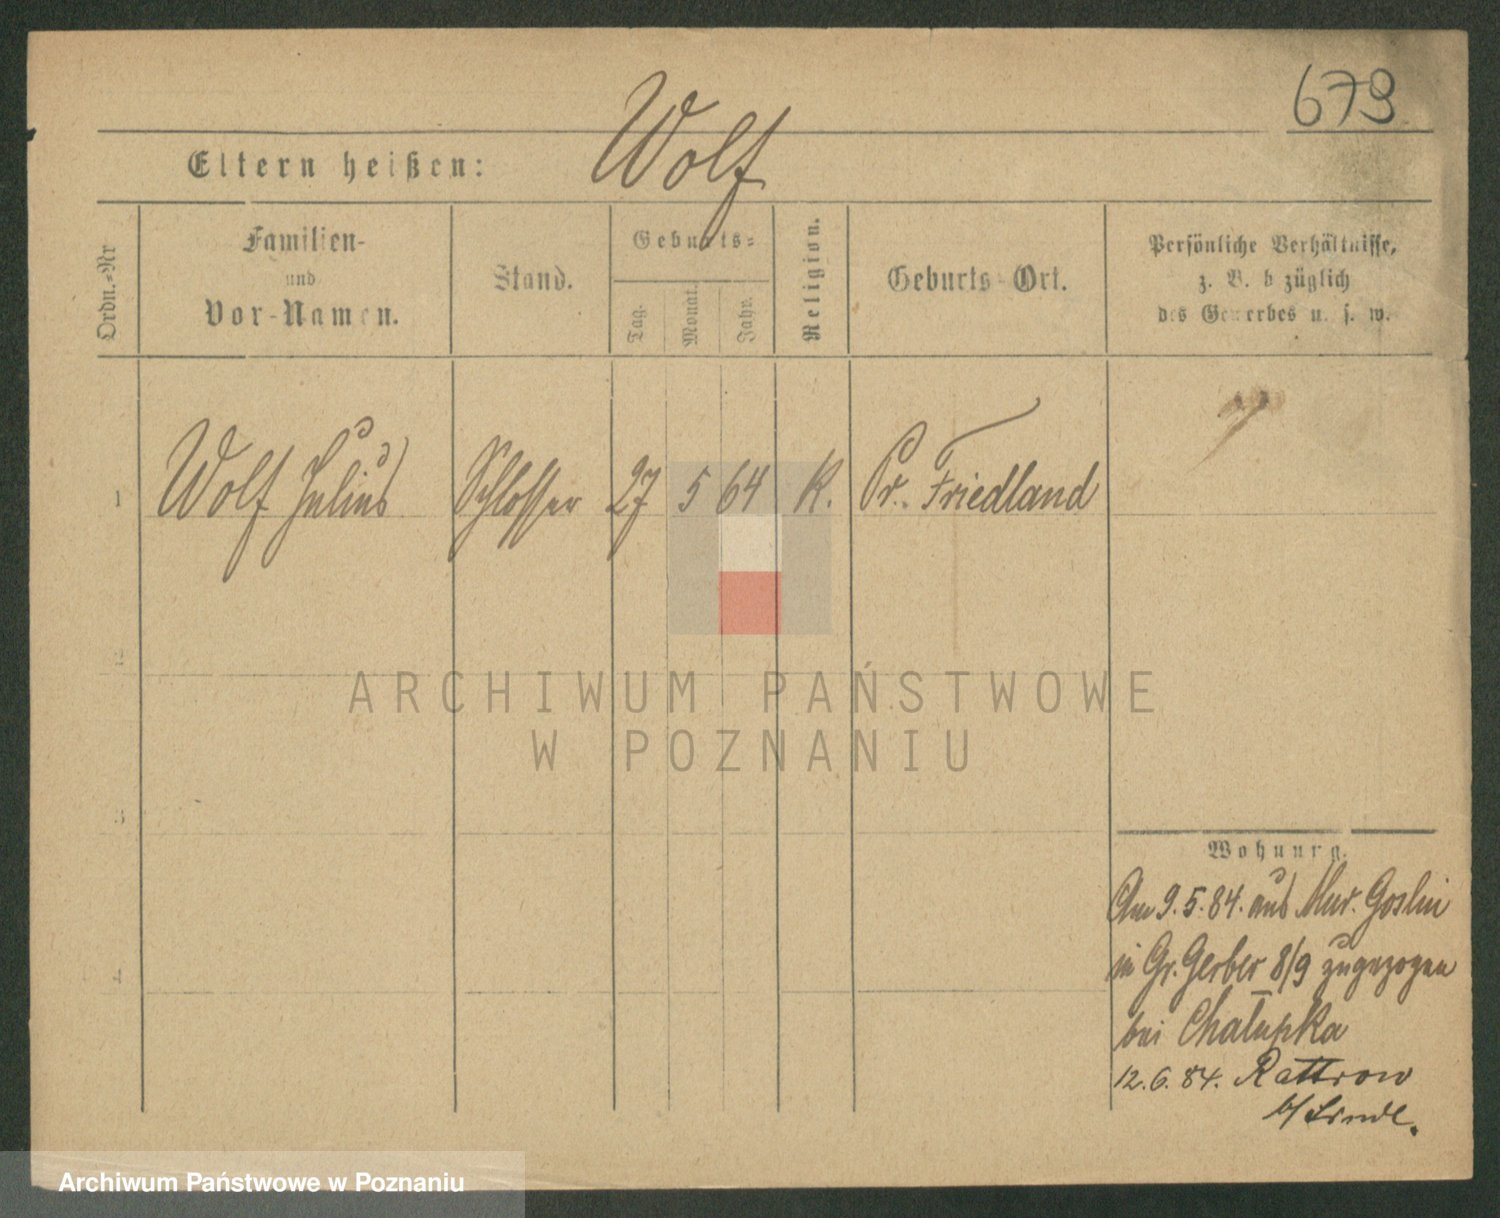 673
Eltern heißen: Wolf
Ordn.-Nr
Familien-
und
Vor-Namen.
Stand.
Geburts-
Tag.
Monat.
Jahr.
Religion.
Geburts-Ort.
Persönliche Verhältnisse,
z. B. bezüglich
des Gewerbes u. s. w.
1 Wolf Julius Schlosser 27 5 64 K. Pr. Friedland
2
3
4
ARCHIWUM PAŃSTWOWE
W POZNANIU
Wohnung.
Am 9.5.84. aus Mur. Goslin
in Gr. Gerber 8/9 zugezogen
bei Chatupka
12.6.84. Rattrow
b/
Archiwum Państwowe w Poznaniu